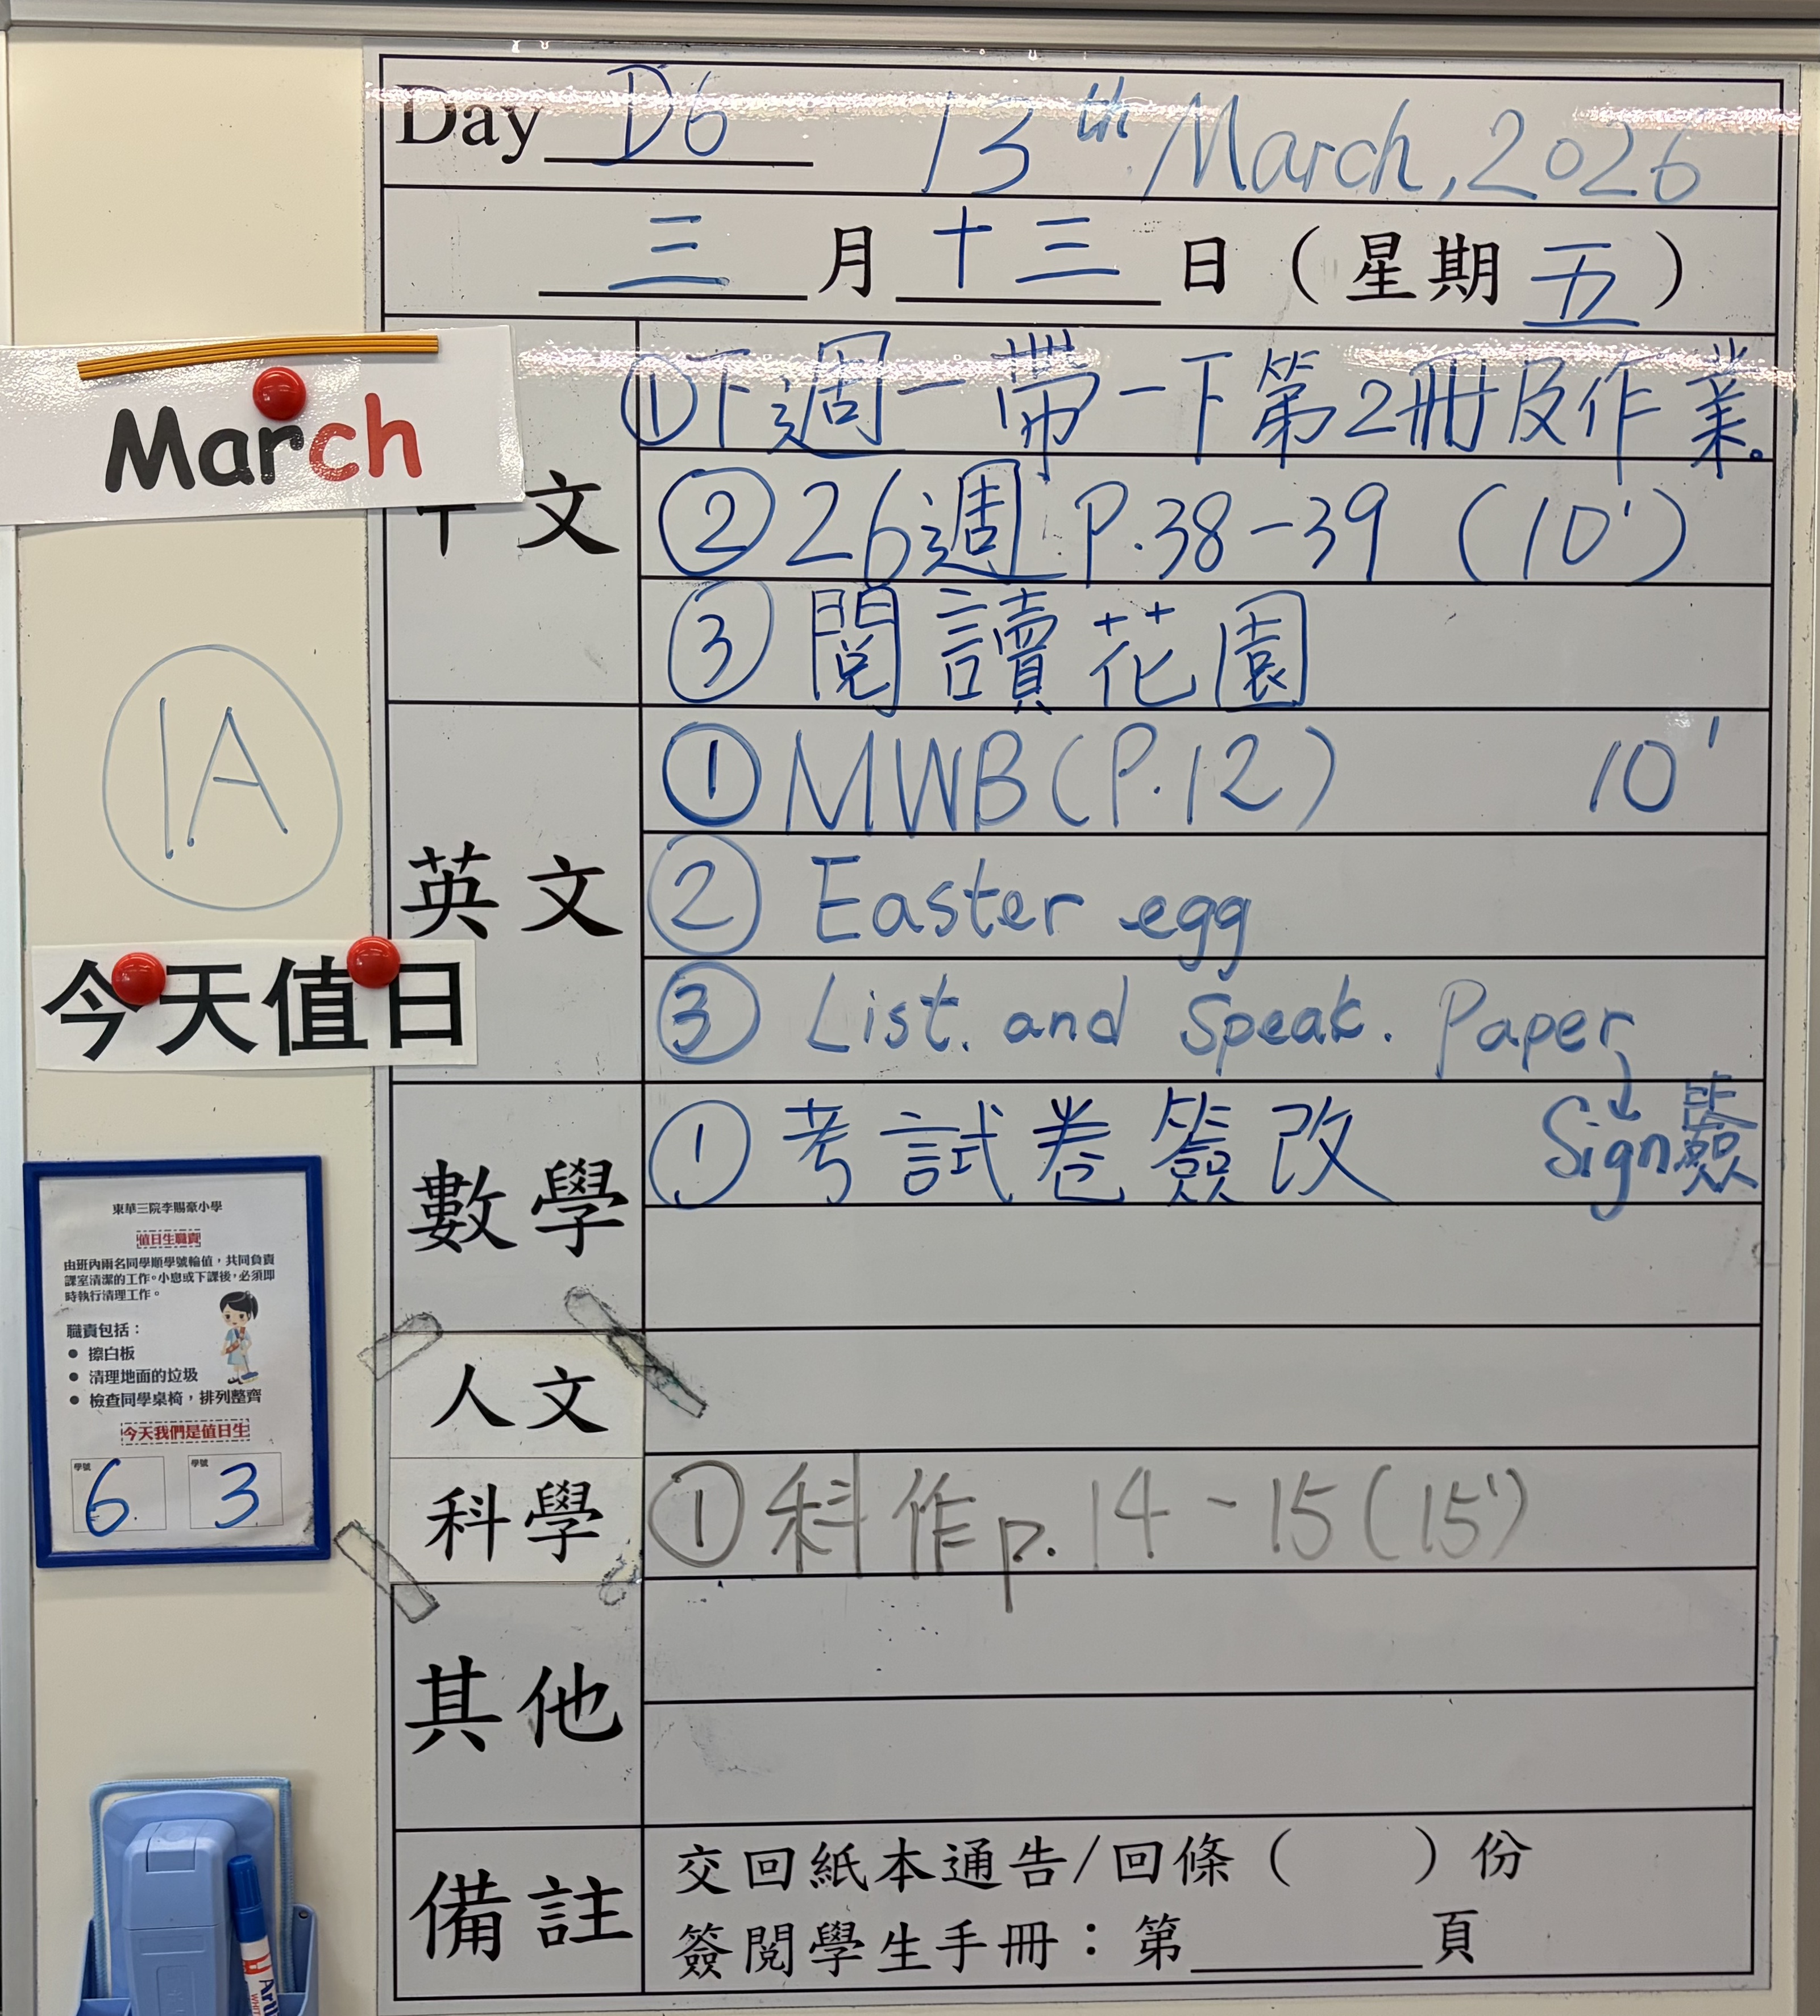 Day D6 13th March, 2026
三 月 十三 日 (星期 五)
March
文
①下週一帶一下第2冊及作業。
②26週 P.38-39 (10')
③閱讀花園
1A
英文
①MWB(P.12) 10'
②Easter egg
③List. and Speak. Paper
↓
Sign簽
今天值日
數學
①考試卷簽改
人文
科學
①科作p.14-15(15')
其他
備註
交回紙本通告/回條( )份
簽閱學生手冊:第______頁
東華三院李賜豪小學
值日生職責
由班內兩名同學順學號輪值,共同負責
課室清潔的工作。小息或下課後,必須即
時執行清理工作。
職責包括:
● 擦白板
● 清理地面的垃圾
● 檢查同學桌椅,排列整齊
今天我們是值日生
學號 6 學號 3